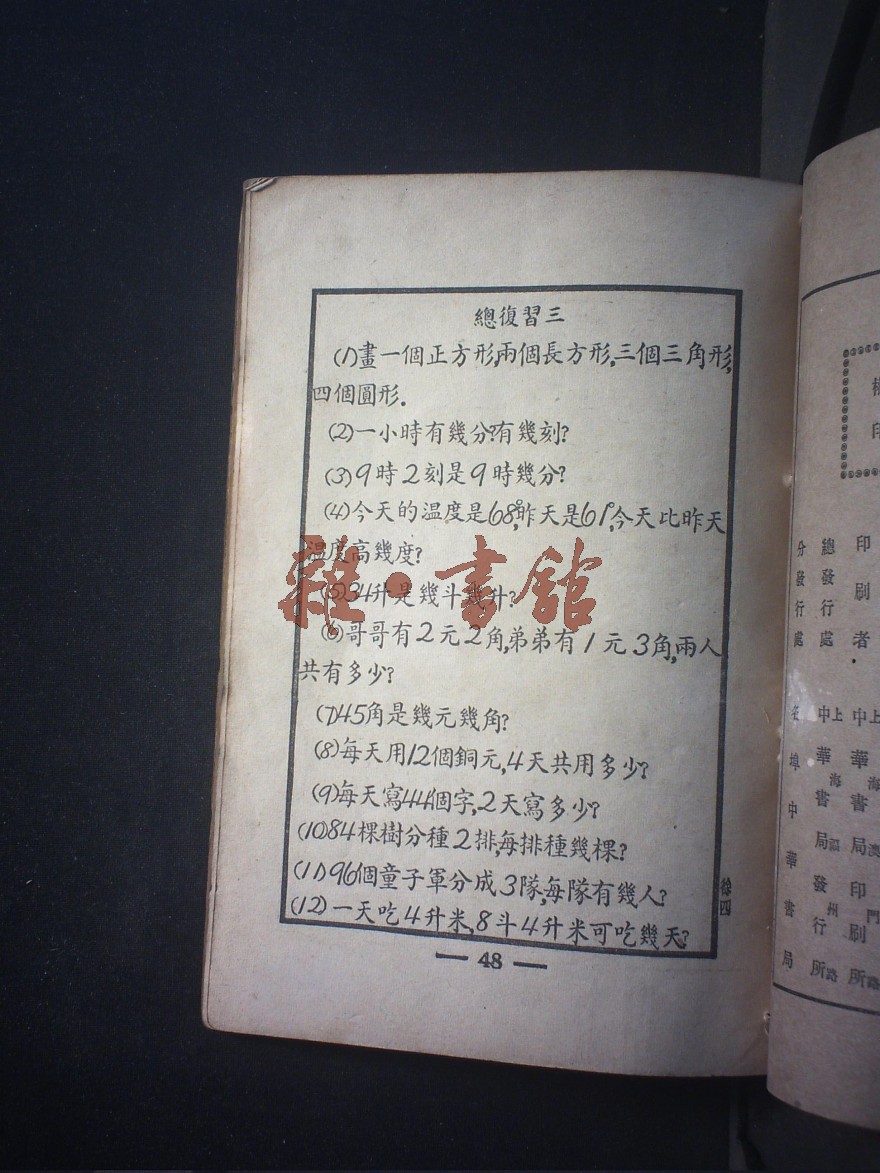 總復習三
(1)畫一個正方形,兩個長方形,三個三角形,
四個圓形.
(2)一小時有幾分?有幾刻?
(3)9時2刻是9時幾分?
(4)今天的温度是68°,昨天是61°,今天比昨天
温度高幾度?
(5)34升是幾斗幾升?
(6)哥哥有2元2角,弟弟有1元3角,兩人
共有多少?
(7)45角是幾元幾角?
(8)每天用12個銅元,4天共用多少?
(9)每天寫44個字,2天寫多少?
(10)84棵樹分種2排,每排種幾棵?
(11)96個童子軍分成3隊,每隊有幾人?
(12)一天吃4升米,8斗4升米可吃幾天?
徐四
— 48 —
雜·書館
印刷者
上海澳門路
中華書局印刷所
總發行處
上海福州路
中華書局發行所
分發行處
埠中華書局